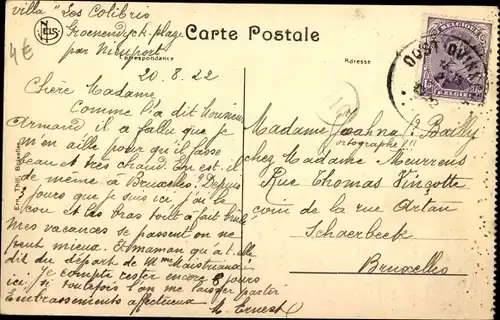 villa "Les Colibris
Groenendyck-plage
par Nieuport
4€
NELS
Carte Postale
Correspondance
Adresse
BELGIQUE
BELGIE
15
20.8.22
Chère Madame,
Comme l'a dit
Armand il a fallu que je
m'en aille pour qu'il fasse
beau et très chaud. En est-il
de même à Bruxelles. Depuis
jours que je suis ici j'ai le
cou et les bras tout à fait brûlé
mes vacances se passent on ne
peut mieux. Et maman qu'a-t-elle
dit du départ de Mme
Je compte rester encore 8 jours
ici, si toutefois l'on me laisse partir
Embrassements affectueux
Ernest
Madame Bailly
orthographe!!!
chez Madame Meurrens
Rue Thomas Vinçotte
coin de la rue Artan
Schaerbeek
Bruxelles
Ern. Thill, Bruxelles